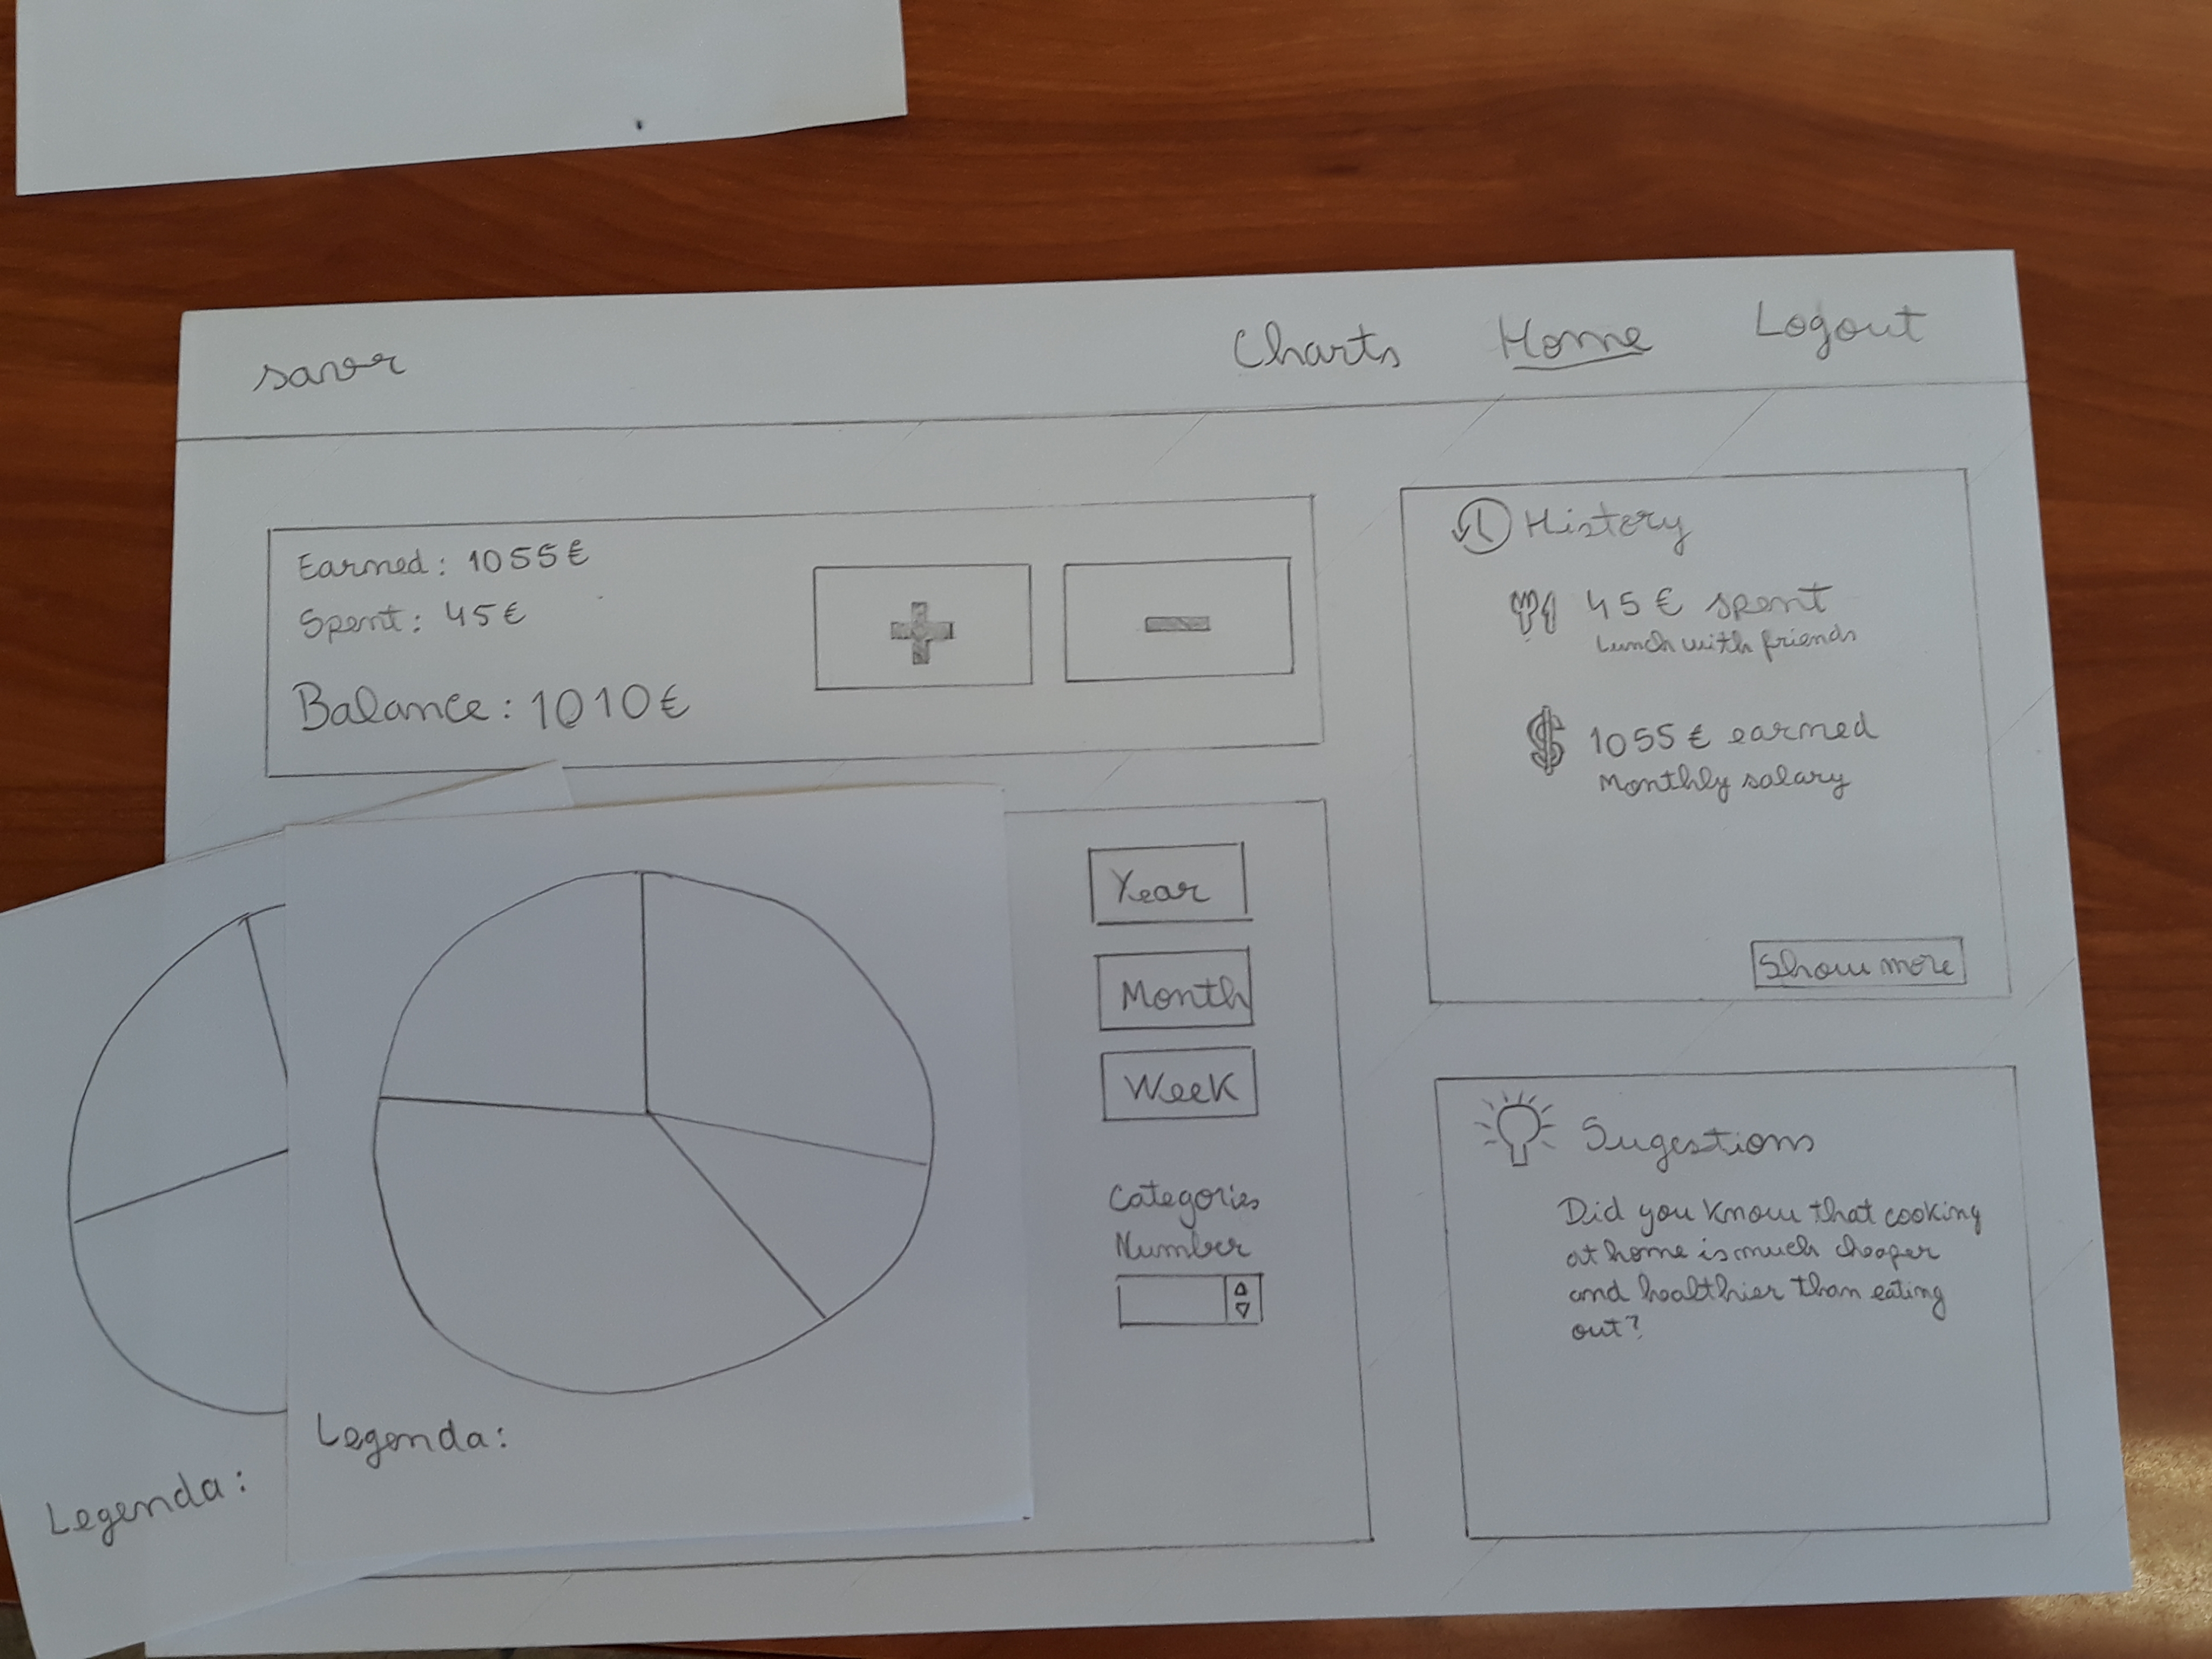 savor
Charts
Home
Logout
Earned: 1055€
Spent: 45€
Balance: 1010€
History
45€ spent
Lunch with friends
1055€ earned
Monthly salary
Show more
Year
Month
Week
Categories
Number
Legenda:
Legenda:
Sugestions
Did you know that cooking
at home is much cheaper
and healthier than eating
out?